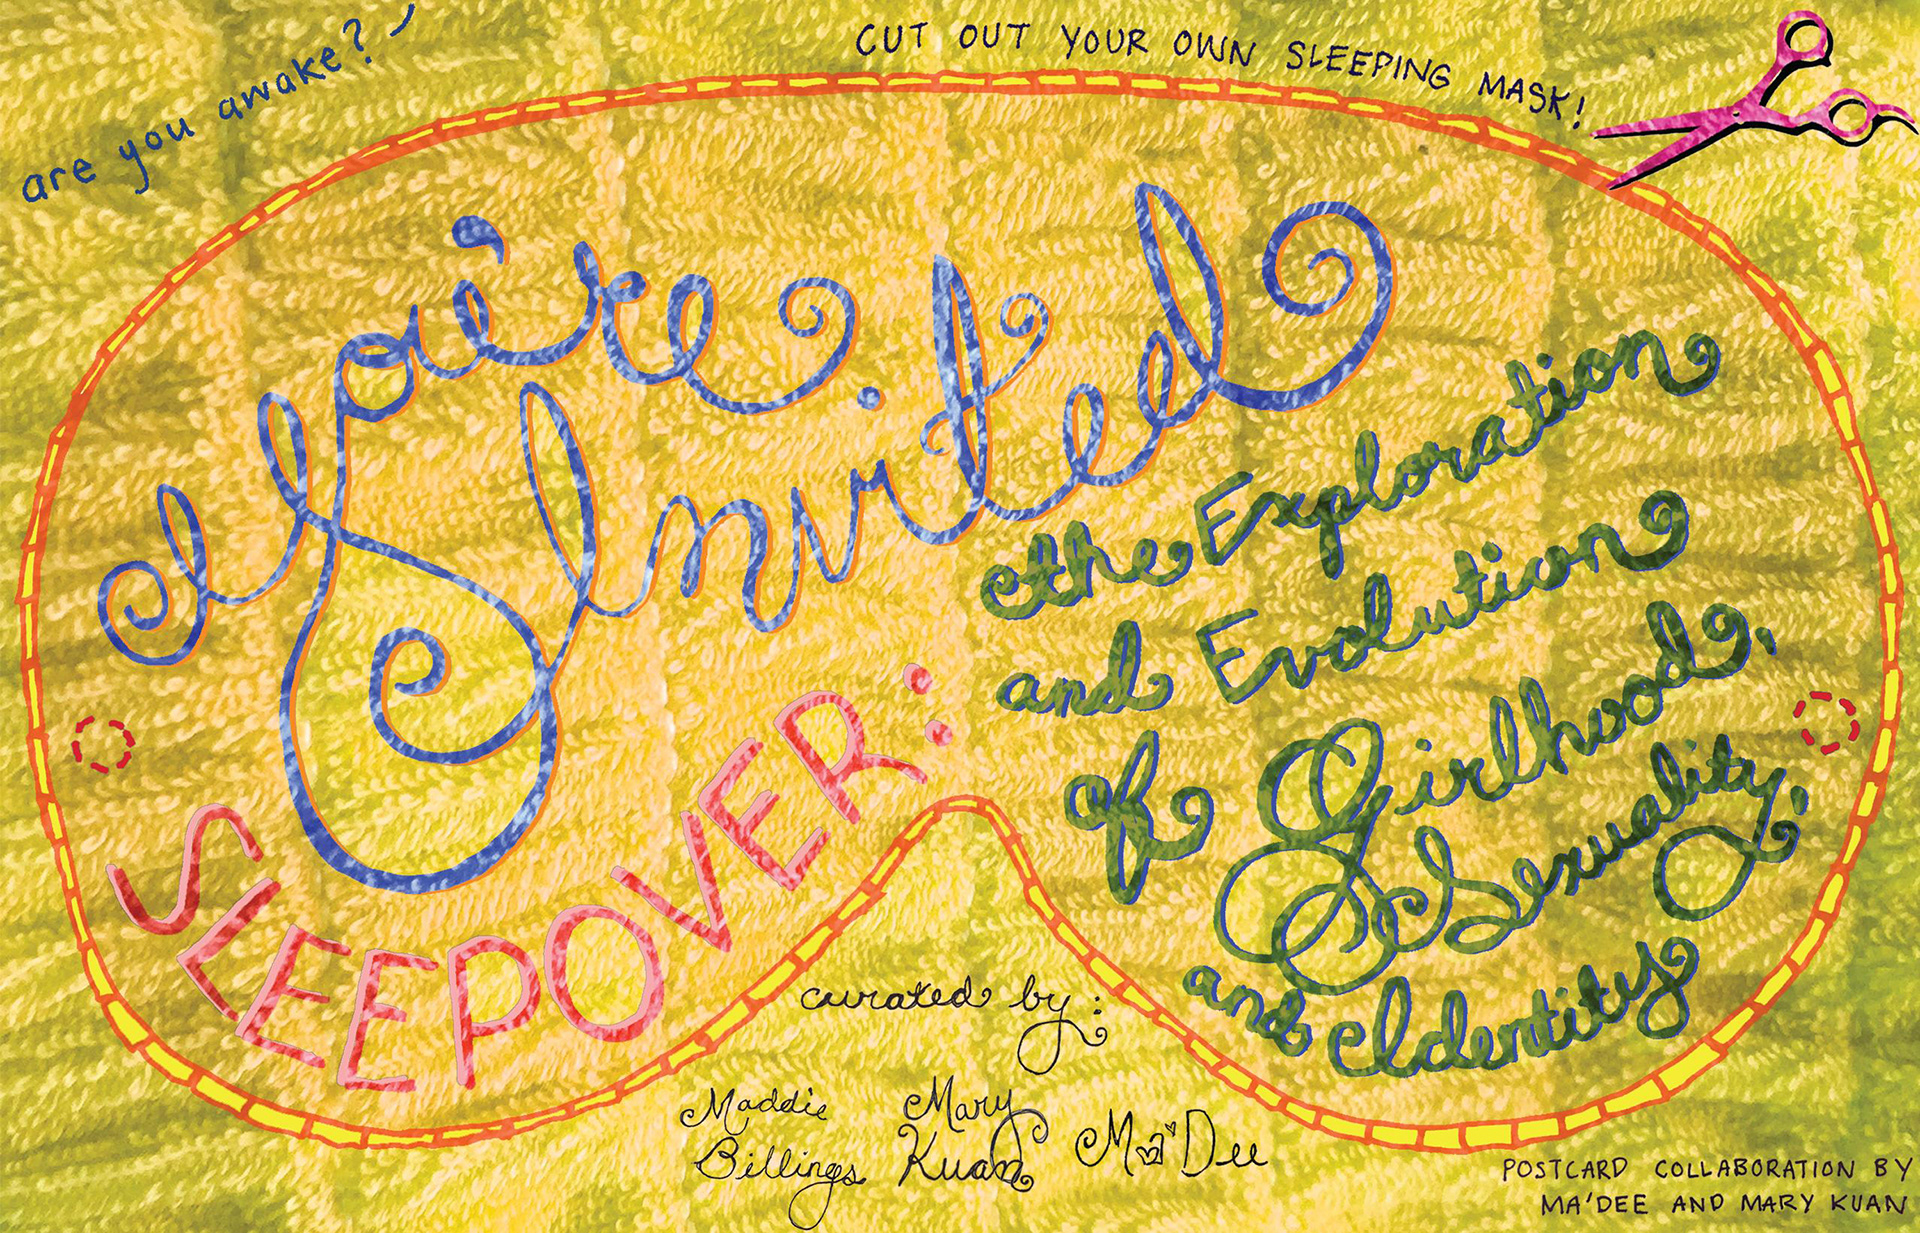 are you awake?
CUT OUT YOUR OWN SLEEPING MASK!
You're
Invited
SLEEPOVER:
the Exploration
and Evolution
of Girlhood,
Sexuality,
and Identity
curated by:
Maddie
Billings
Mary
Kuan
Ma'Dee
POSTCARD COLLABORATION BY
MA'DEE AND MARY KUAN